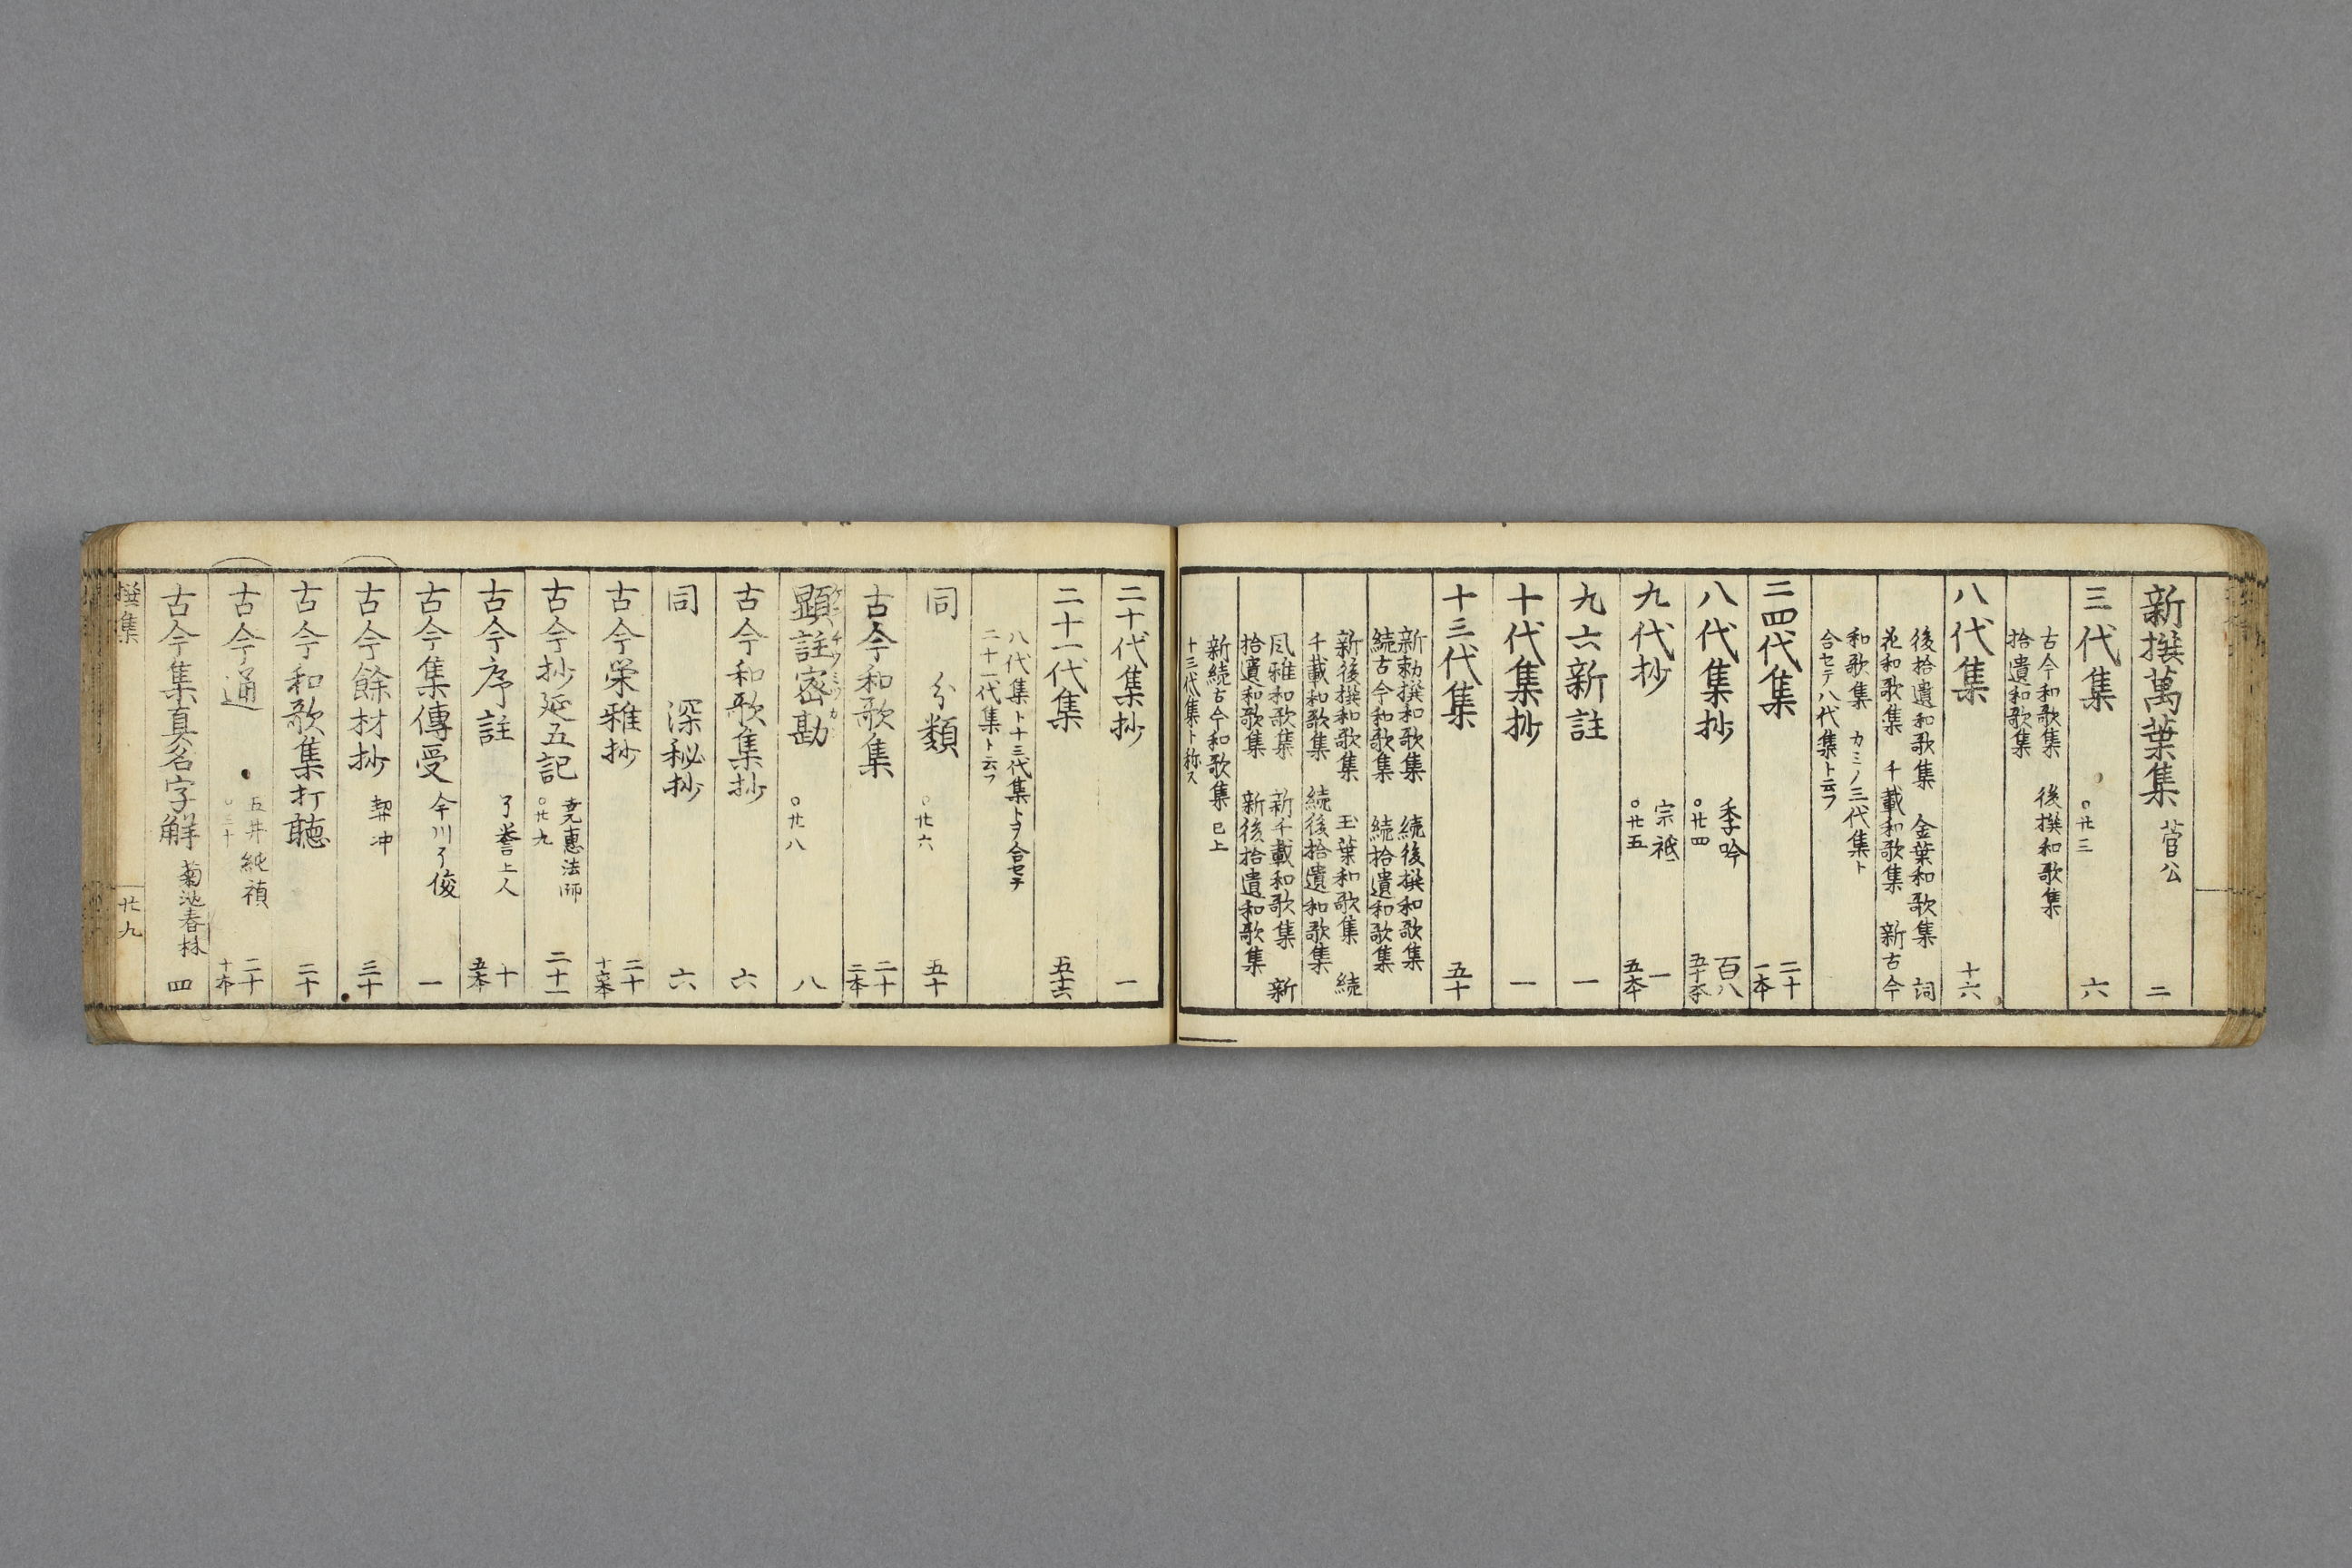 新撰萬葉集 菅公 二
三代集 ○廿三 六
古今和歌集 後撰和歌集
拾遺和歌集
八代集 十六
後拾遺和歌集 金葉和歌集 詞
花和歌集 千載和歌集 新古今
和歌集 カミノ三代集ト
合セテ八代集ト云フ
三四代集 二十一本
八代集抄 季吟 ○廿四 百八 五十本
九代抄 宗祇 ○廿五 一 五本
九六新註 一
十代集抄 一
十三代集 五十
新勅撰和歌集 続後撰和歌集
続古今和歌集 続拾遺和歌集
新後撰和歌集 玉葉和歌集 続
千載和歌集 続後拾遺和歌集
風雅和歌集 新千載和歌集 新
拾遺和歌集 新後拾遺和歌集
新続古今和歌集 已上
十三代集ト称ス
二十代集抄 一
二十一代集 五十六
八代集ト十三代集トヲ合セテ
二十一代集ト云フ
同 分類 ○廿六 五十
古今和歌集 二十 二本
顕註密勘 ○廿八 八
古今和歌集抄 六
同 深秘抄 六
古今栄雅抄 二十
古今抄延五記 尭恵法師 ○廿九 二十一
古今序註 了誉上人 十 五本
古今集傳受 今川了俊 一
古今餘材抄 契冲 三十
古今和歌集打聴 二十
古今通 五井純禎 ○三十 二十 十本
古今集真名字解 菊池春林 四
撰集 廿九